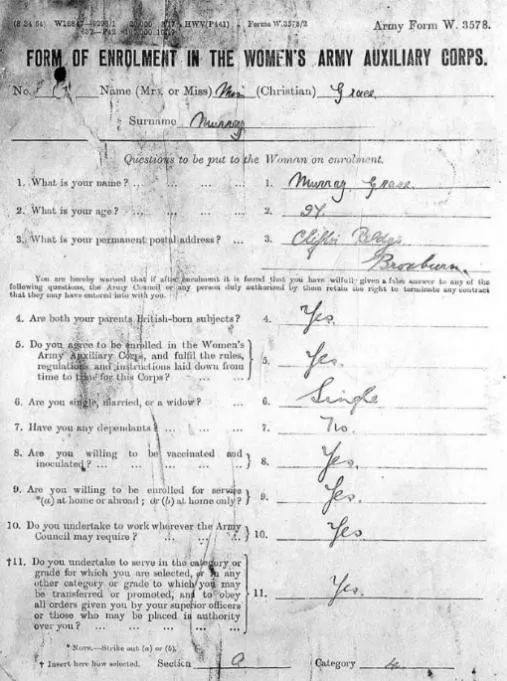 Army Form W. 3578.
FORM OF ENROLMENT IN THE WOMEN'S ARMY AUXILIARY CORPS.
No. Name (Mrs. or Miss) Miss (Christian) Grace
Surname Murray
Questions to be put to the Woman on enrolment.
1. What is your name? ... ... ... 1. Murray Grace
2. What is your age? ... ... ... 2.
3. What is your permanent postal address? ... ... 3. Clifton
Broxburn.
You are hereby warned that if after enrolment it is found that you have wilfully given a false answer to any of the
following questions, the Army Council or any person duly authorised by them retain the right to terminate any contract
that they may have entered into with you.
4. Are both your parents British-born subjects? 4. Yes.
5. Do you agree to be enrolled in the Women's
Army Auxiliary Corps, and fulfil the rules,
regulations and instructions laid down from
time to time for this Corps? 5. Yes.
6. Are you single, married, or a widow? ... 6. Single
7. Have you any dependants? ... ... ... 7. No.
8. Are you willing to be vaccinated and
inoculated? ... ... ... ... 8. Yes.
9. Are you willing to be enrolled for service
*(a) at home or abroad; or (b) at home only? 9. Yes.
10. Do you undertake to work wherever the Army
Council may require? ... ... ... 10. Yes
†11. Do you undertake to serve in the category or
grade for which you are selected, or in any
other category or grade to which you may
be transferred or promoted, and to obey
all orders given you by your superior officers
or those who may be placed in authority
over you? ... ... ... ... 11. Yes.
* NOTE.—Strike out (a) or (b).
† Insert here how selected. Section Category